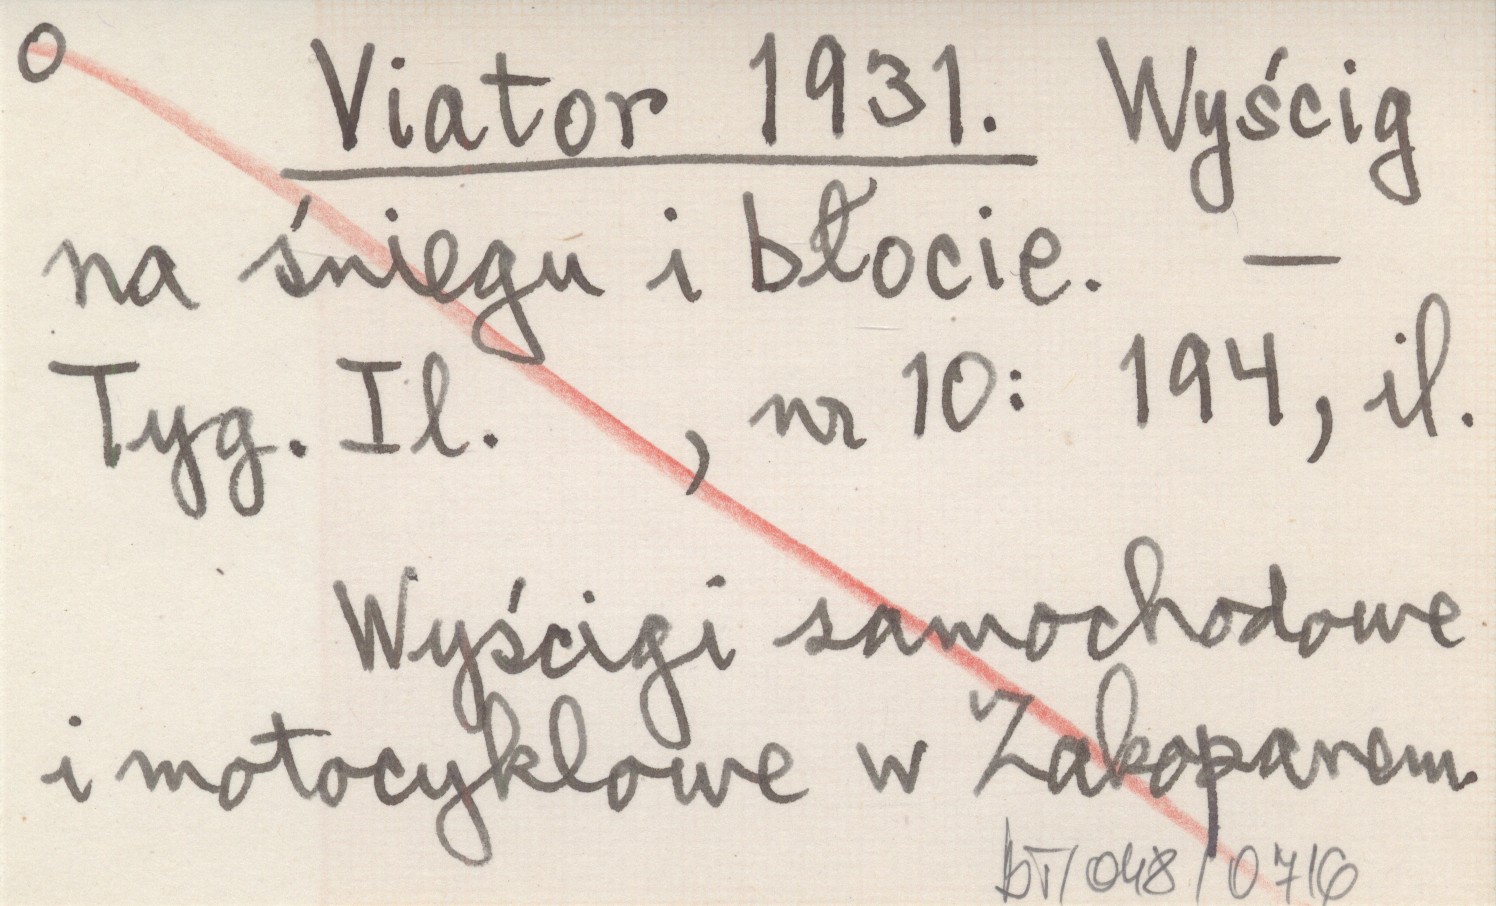 o Viator 1931. Wyścig
na śniegu i błocie. —
Tyg. Il. , nr 10: 194, il.
Wyścigi samochodowe
i motocyklowe w Zakopanem.
bT/048/0716